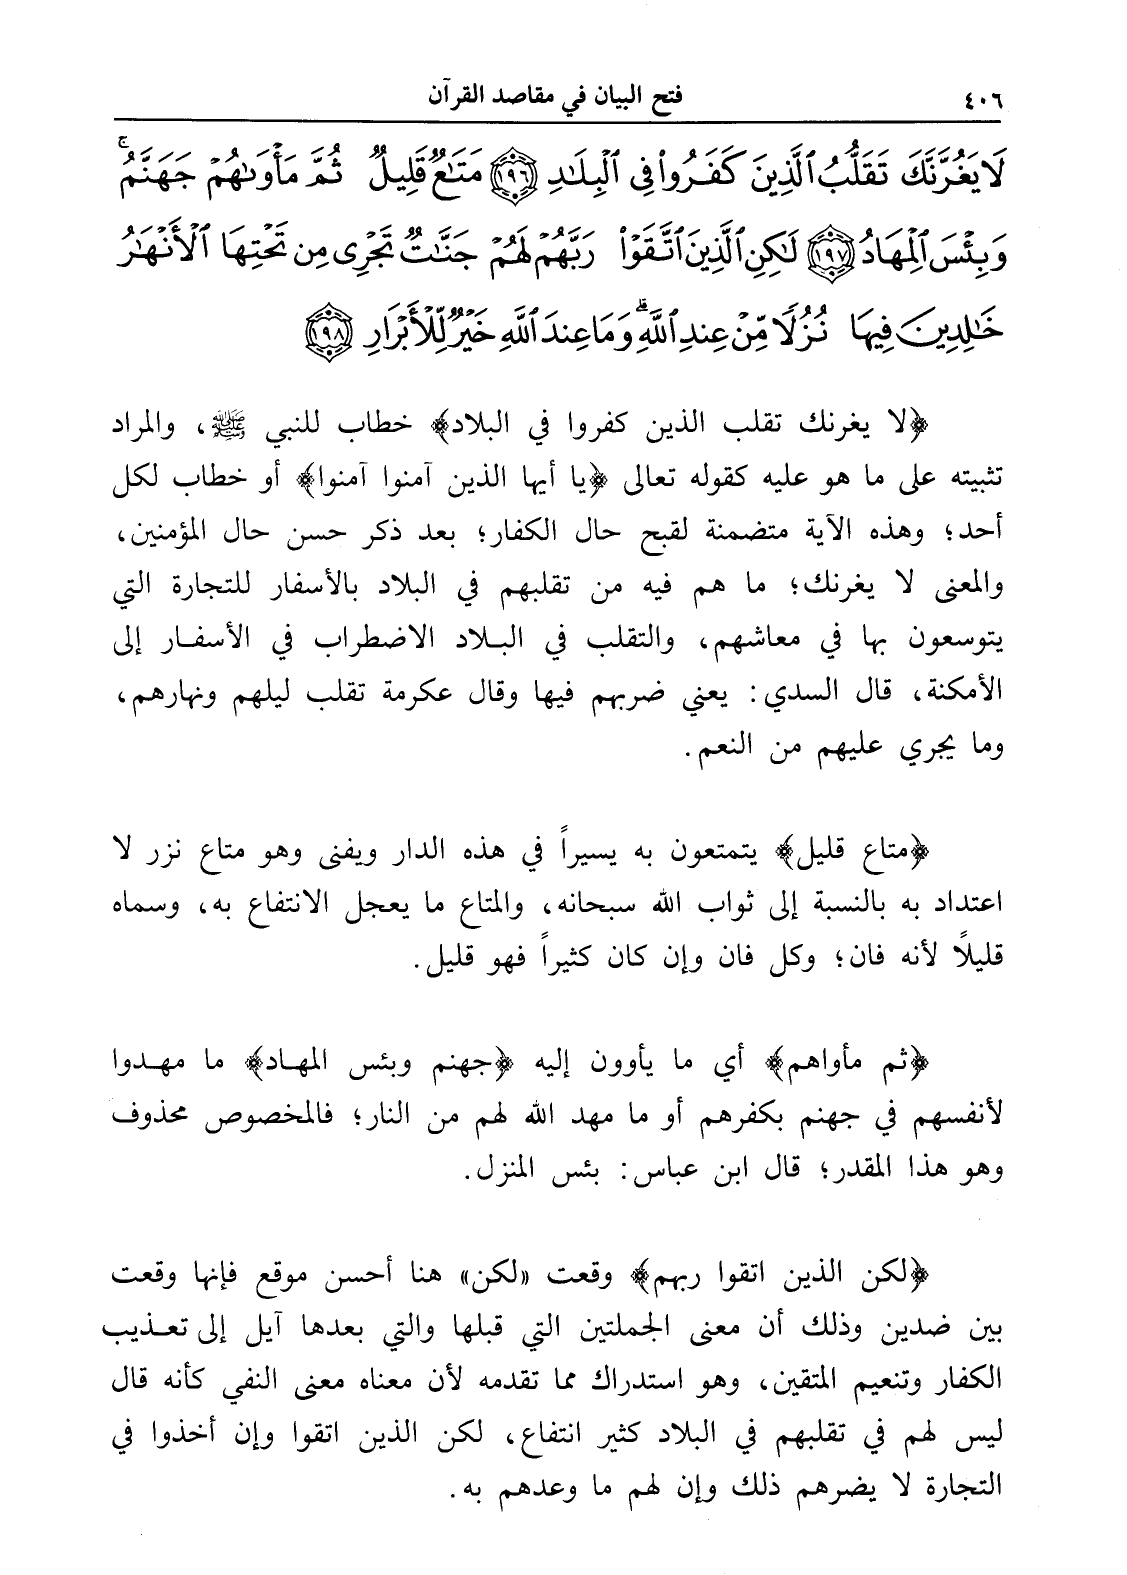 ٤٠٦ فتح البيان في مقاصد القرآن
لَا يَغُرَّنَّكَ تَقَلُّبُ ٱلَّذِينَ كَفَرُوا۟ فِى ٱلْبِلَـٰدِ ١٩٦ مَتَـٰعٌ قَلِيلٌ ثُمَّ مَأْوَىٰهُمْ جَهَنَّمُ ۚ
وَبِئْسَ ٱلْمِهَادُ ١٩٧ لَـٰكِنِ ٱلَّذِينَ ٱتَّقَوْا۟ رَبَّهُمْ لَهُمْ جَنَّـٰتٌ تَجْرِى مِن تَحْتِهَا ٱلْأَنْهَـٰرُ
خَـٰلِدِينَ فِيهَا نُزُلًا مِّنْ عِندِ ٱللَّهِ ۗ وَمَا عِندَ ٱللَّهِ خَيْرٌ لِّلْأَبْرَارِ ١٩٨
﴿لا يغرنك تقلب الذين كفروا في البلاد﴾ خطاب للنبي ﷺ، والمراد
تثبيته على ما هو عليه كقوله تعالى ﴿يا أيها الذين آمنوا آمنوا﴾ أو خطاب لكل
أحد؛ وهذه الآية متضمنة لقبح حال الكفار؛ بعد ذكر حسن حال المؤمنين،
والمعنى لا يغرنك؛ ما هم فيه من تقلبهم في البلاد بالأسفار للتجارة التي
يتوسعون بها في معاشهم، والتقلب في البلاد الاضطراب في الأسفار إلى
الأمكنة، قال السدي: يعني ضربهم فيها وقال عكرمة تقلب ليلهم ونهارهم،
وما يجري عليهم من النعم.
﴿متاع قليل﴾ يتمتعون به يسيراً في هذه الدار ويفنى وهو متاع نزر لا
اعتداد به بالنسبة إلى ثواب الله سبحانه، والمتاع ما يعجل الانتفاع به، وسماه
قليلًا لأنه فان؛ وكل فان وإن كان كثيراً فهو قليل.
﴿ثم مأواهم﴾ أي ما يأوون إليه ﴿جهنم وبئس المهاد﴾ ما مهدوا
لأنفسهم في جهنم بكفرهم أو ما مهد الله لهم من النار؛ فالمخصوص محذوف
وهو هذا المقدر؛ قال ابن عباس: بئس المنزل.
﴿لكن الذين اتقوا ربهم﴾ وقعت «لكن» هنا أحسن موقع فإنها وقعت
بين ضدين وذلك أن معنى الجملتين التي قبلها والتي بعدها آيل إلى تعذيب
الكفار وتنعيم المتقين، وهو استدراك مما تقدمه لأن معناه معنى النفي كأنه قال
ليس لهم في تقلبهم في البلاد كثير انتفاع، لكن الذين اتقوا وإن أخذوا في
التجارة لا يضرهم ذلك وإن لهم ما وعدهم به.